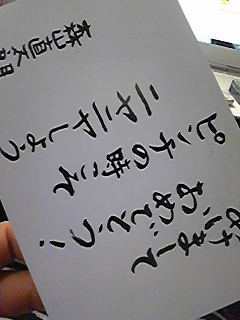 あけまして
おめでとう!
ピンチの時こそ
ニヤニヤしよう
森山直太朗